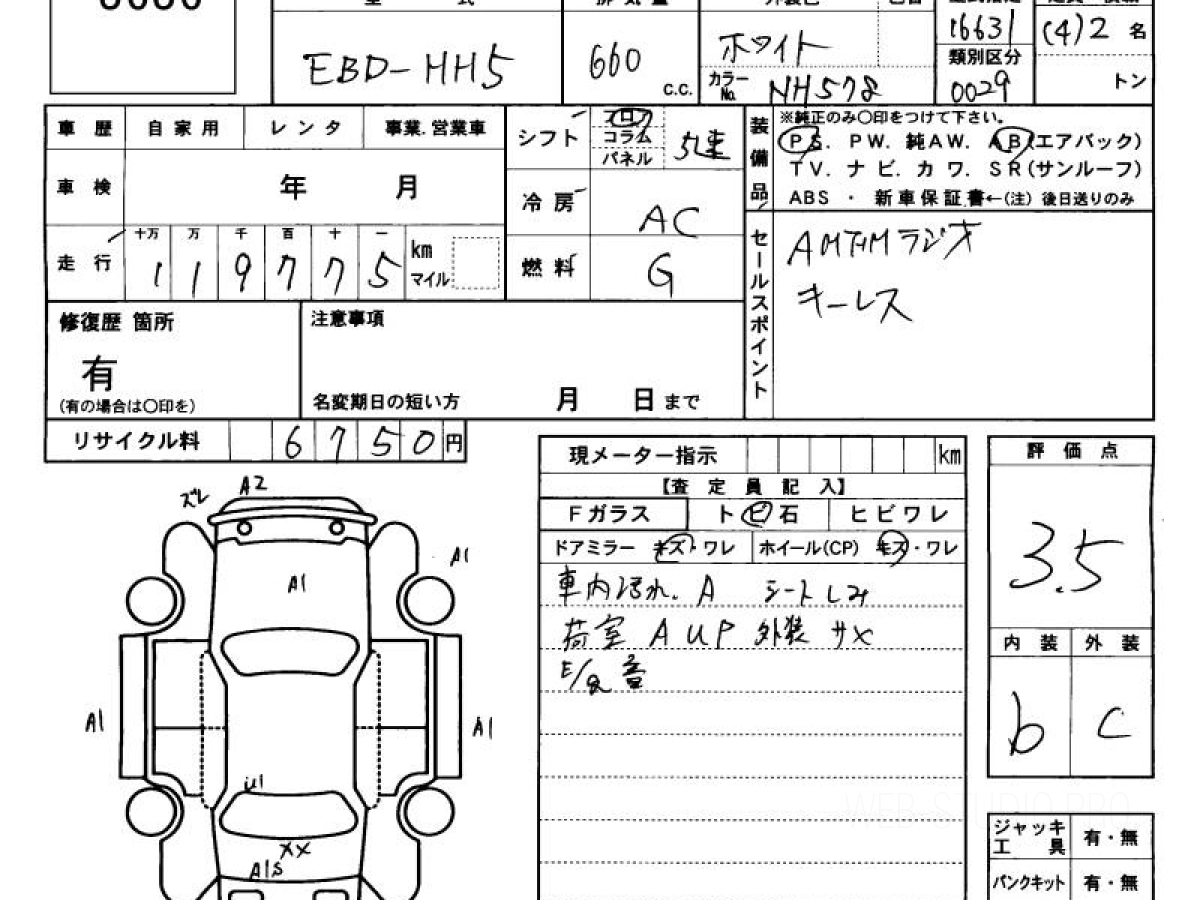 EBD-HH5
660
c.c.
ホワイト
カラーNo. NH578
16631
類別区分
0029
(4) 2 名
トン
車歴 自家用 レンタ 事業.営業車
車検 年 月
走行 十万 万 千 百 十 一
1 1 9 7 7 5 km マイル
シフト フロア コラム パネル 5速
冷房 AC
燃料 G
装備品
※純正のみ〇印をつけて下さい。
PS. PW. 純AW. AB(エアバック)
TV. ナビ. カワ. SR(サンルーフ)
ABS ・ 新車保証書←(注) 後日送りのみ
セールスポイント
AMFMラジオ
キーレス
修復歴 箇所
有
(有の場合は〇印を)
注意事項
名変期日の短い方 月 日まで
リサイクル料 6 7 5 0 円
現メーター指示 km
【査定員記入】
Fガラス トビ石 ヒビワレ
ドアミラー キズ・ワレ ホイール(CP) キズ・ワレ
車内汚れ. A シートしみ
荷室 A UP 外装 サX
E/g音
評価点
3.5
内装 外装
b C
ジャッキ工具 有・無
パンクキット 有・無
ズレ A2
A1
A1
A1
A1
U1
XX
A1S
WEB-STUDIO.PRO